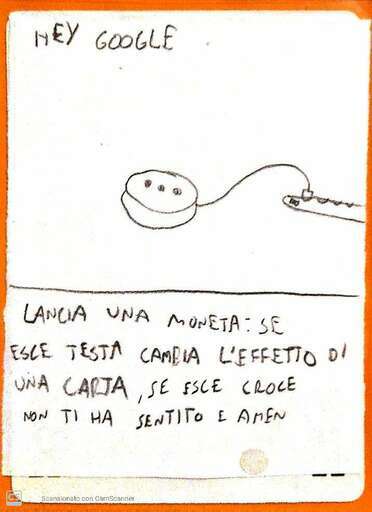 HEY GOOGLE
LANCIA UNA MONETA: SE
ESCE TESTA CAMBIA L'EFFETTO DI
UNA CARTA, SE ESCE CROCE
NON TI HA SENTITO E AMEN
CS
Scansionato con CamScanner